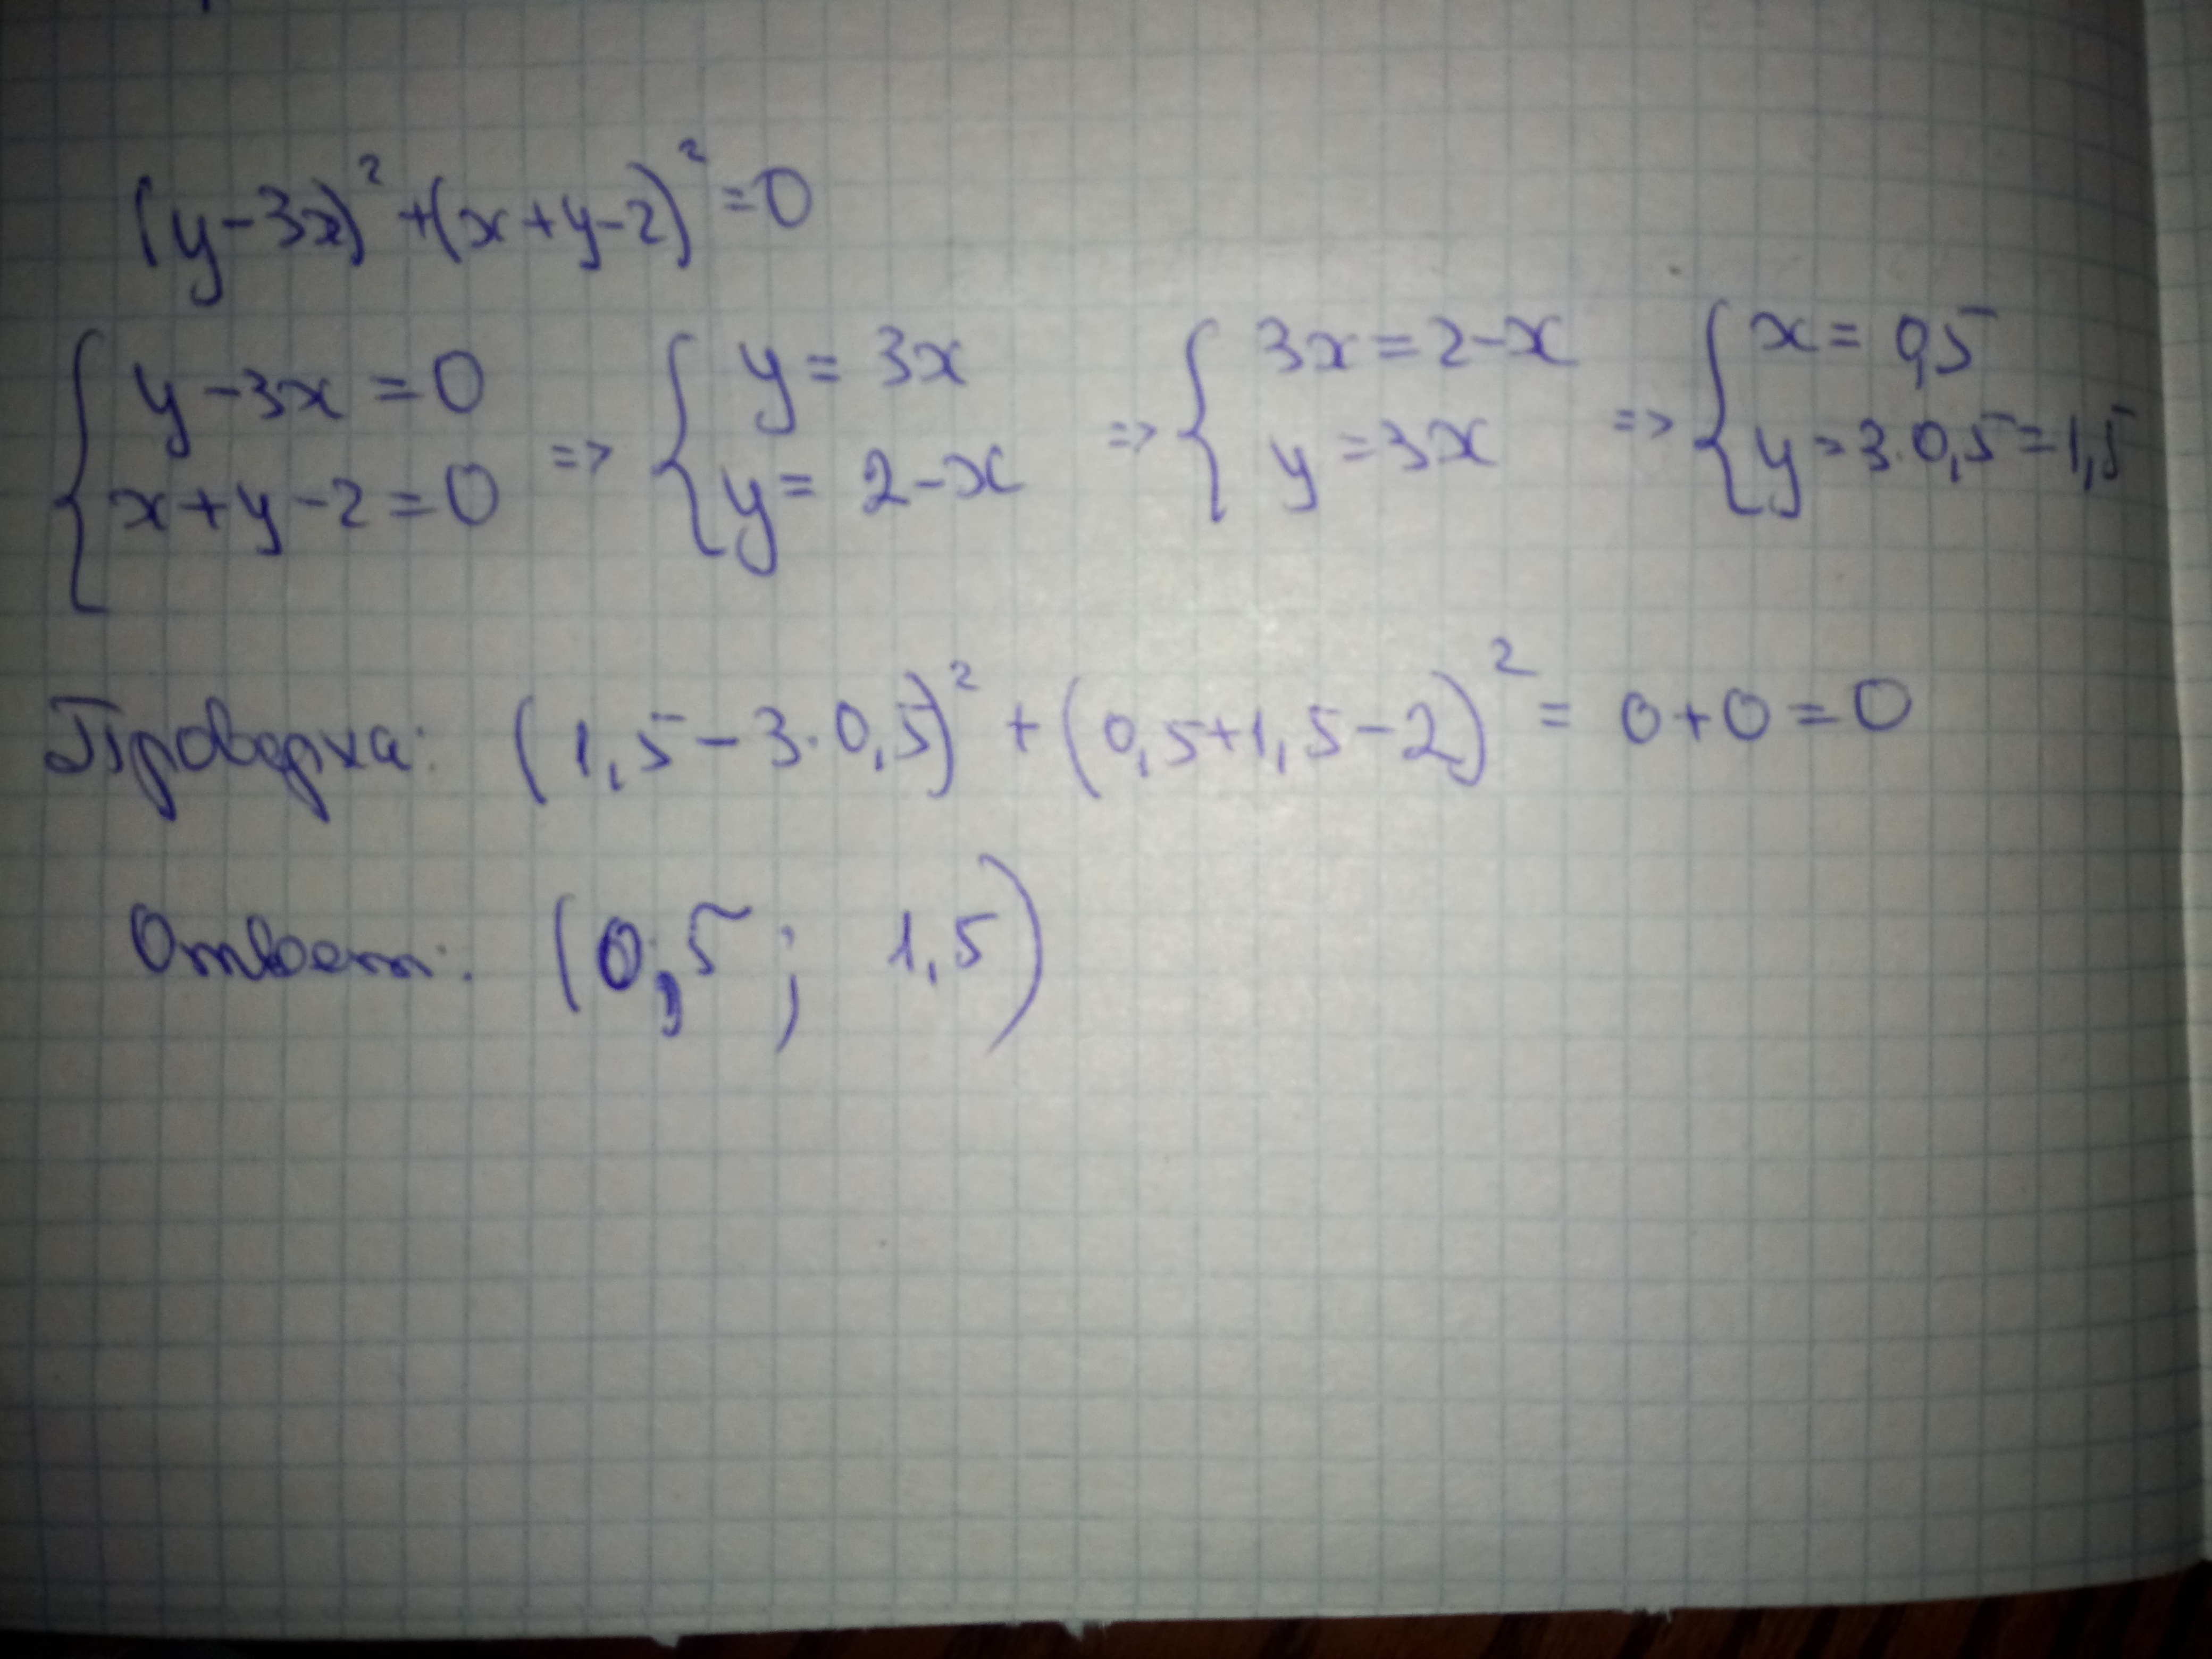 (y-3x)²+(x+y-2)²=0
{ y-3x=0 => { y=3x => { 3x=2-x => { x=0,5
x+y-2=0 y=2-x y=3x y=3·0,5=1,5
Проверка: (1,5-3·0,5)²+(0,5+1,5-2)²=0+0=0
Ответ: (0,5; 1,5)